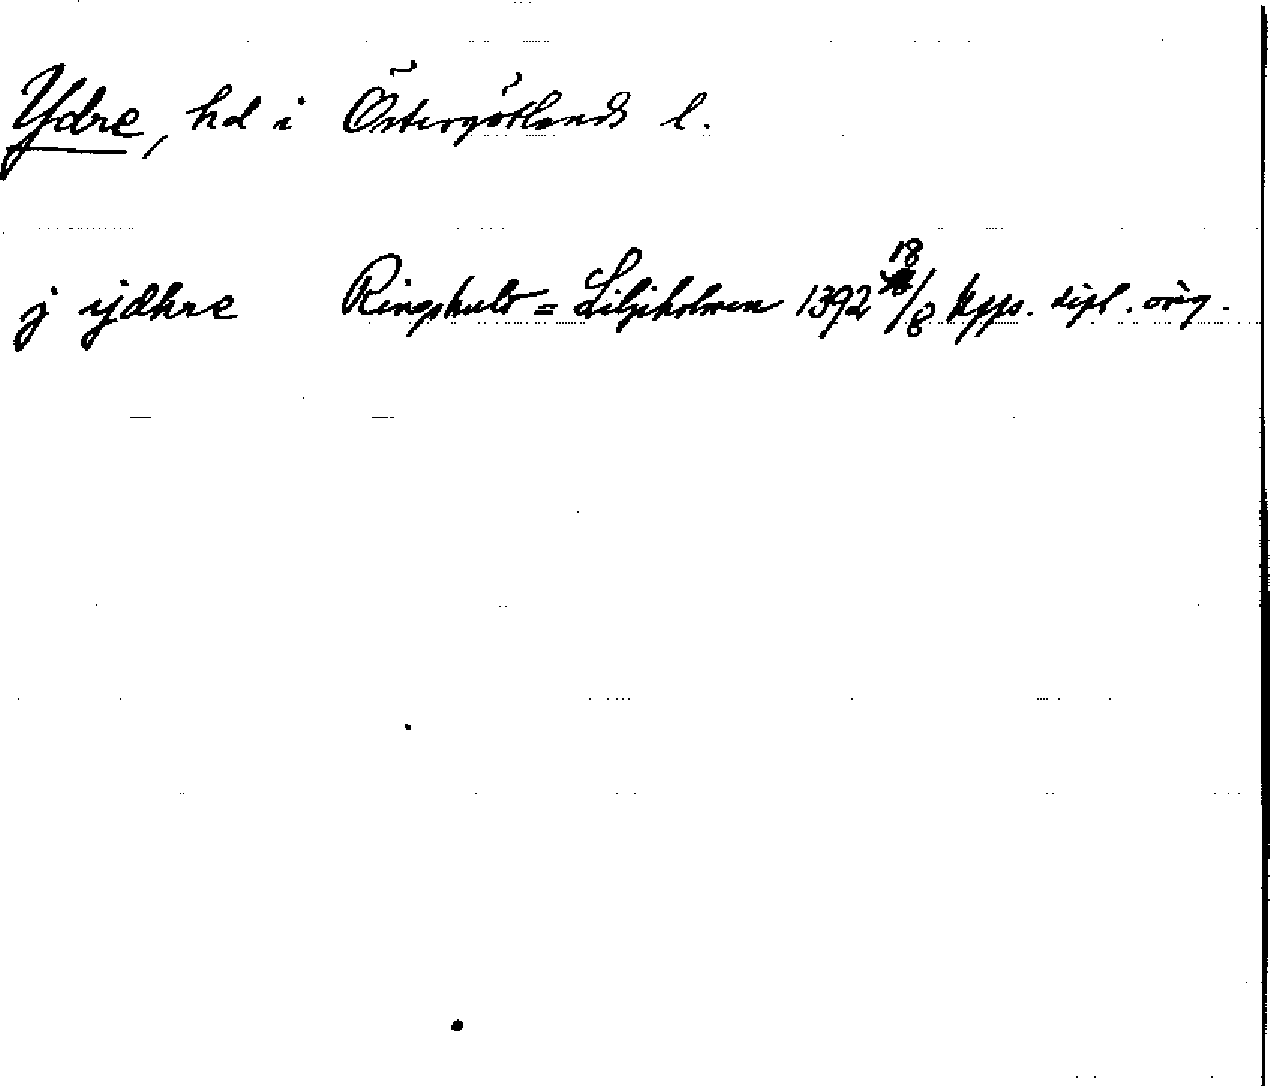 Ydre, hd i Östergötlands l.
j ydhre Ringshult = Liljeholmen 1392 18/8 Kpps. dipl. orig.